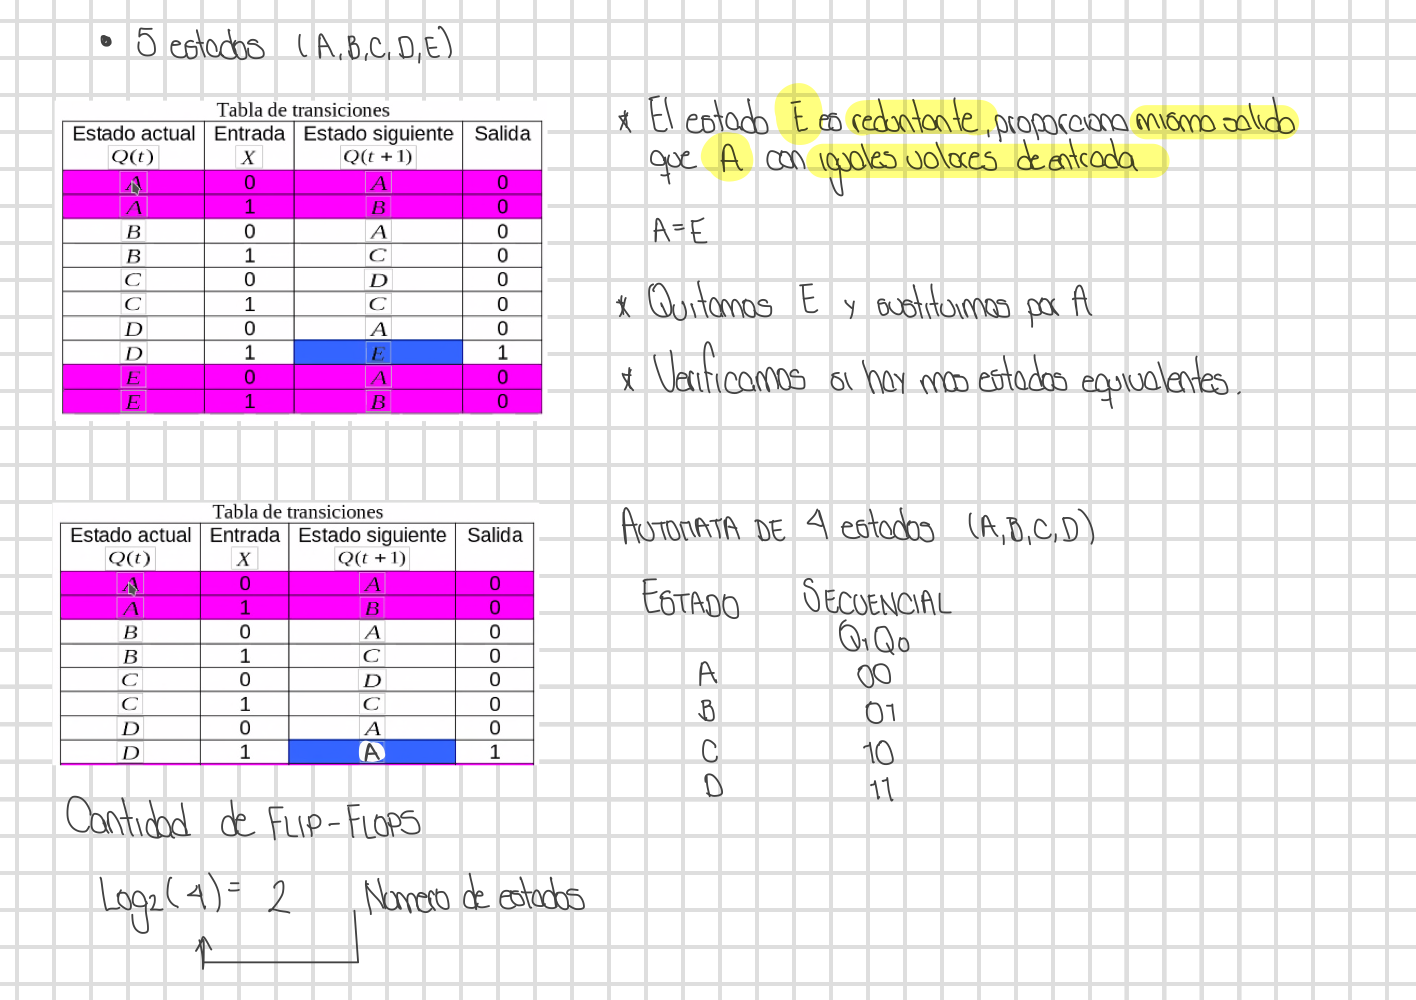 • 5 estados (A,B,C,D,E)
Tabla de transiciones
Estado actual Entrada Estado siguiente Salida
Q(t) X Q(t + 1)
A 0 A 0
A 1 B 0
B 0 A 0
B 1 C 0
C 0 D 0
C 1 C 0
D 0 A 0
D 1 E 1
E 0 A 0
E 1 B 0
* El estado E es reduntante, proporciona misma salida
que A con iguales valores de entrada
A=E
* Quitamos E y sustituimos por A
* Verificamos si hay mas estados equivalentes.
Tabla de transiciones
Estado actual Entrada Estado siguiente Salida
Q(t) X Q(t + 1)
A 0 A 0
A 1 B 0
B 0 A 0
B 1 C 0
C 0 D 0
C 1 C 0
D 0 A 0
D 1 A 1
AUTOMATA DE 4 estados (A,B,C,D)
ESTADO SECUENCIAL
Q1Q0
A 00
B 01
C 10
D 11
Cantidad de FLIP-FLOPS
Log2(4) = 2 Numero de estados